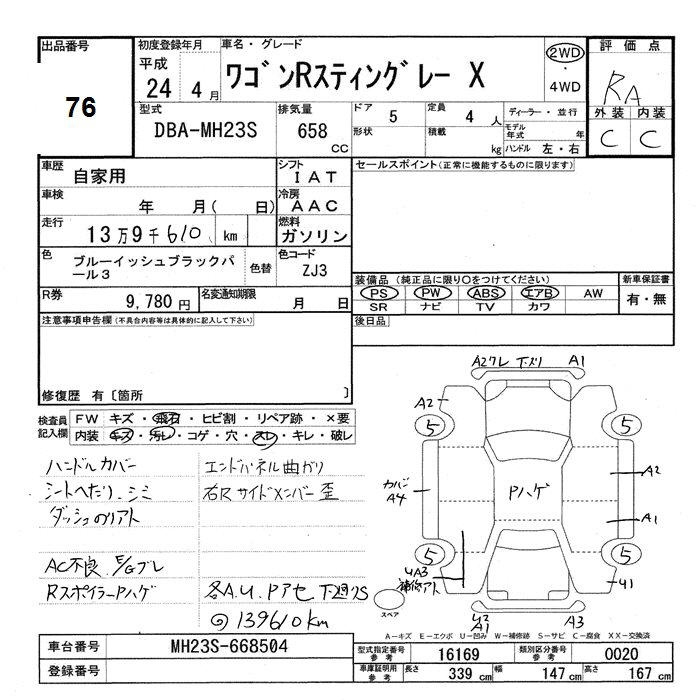 出品番号
76
初度登録年月
平成
24年 4月
車名・グレード
ワゴンRスティングレー X
2WD
・
4WD
評価点
RA
外装 内装
C C
型式
DBA-MH23S
排気量
658
cc
ドア 5
形状
定員 4 人
積載 kg
ディーラー・並行
モデル年式 年
ハンドル 左・右
車歴
自家用
シフト
IAT
車検
年 月( 日)
冷房
AAC
走行
13万9千610 km
燃料
ガソリン
色
ブルーイッシュブラックパール3
色替
色コード
ZJ3
R券
9,780円
名変通知期限
月 日
セールスポイント(正常に機能するものに限ります)
装備品(純正品に限り○をつけてください)
PS PW ABS エアB AW
SR ナビ TV カワ
新車保証書
有・無
後日品
注意事項申告欄(不具合内容等は具体的に記入して下さい)
修復歴 有〔箇所 〕
検査員記入欄
FW キズ・飛石・ヒビ割・リペア跡・×要
内装 キズ・汚レ・コゲ・穴・スレ・キレ・破レ
ハンドルカバー
シートへたり.シミ
ダッシュのリアト
AC不良.E/Gブレ
RスポイラーPハゲ
エンドパネル曲がり
右Rサイドメンバー歪
各A.U.Pアセ下廻りS
◎139610km
A2ワレ 下ズリ A1
A2
5
5
カバー
A4
Pハゲ
A2
A1
5
5
UA3
補修アト
U1
スペア
U2
A1
A3
A-キズ E-エクボ U-凹み W-補修跡 S-サビ C-腐食 XX-交換済
車台番号
MH23S-668504
登録番号
型式指定番号 参考 16169
類別区分番号 参考 0020
車庫証明用 参考 長さ 339 cm 幅 147 cm 高さ 167 cm